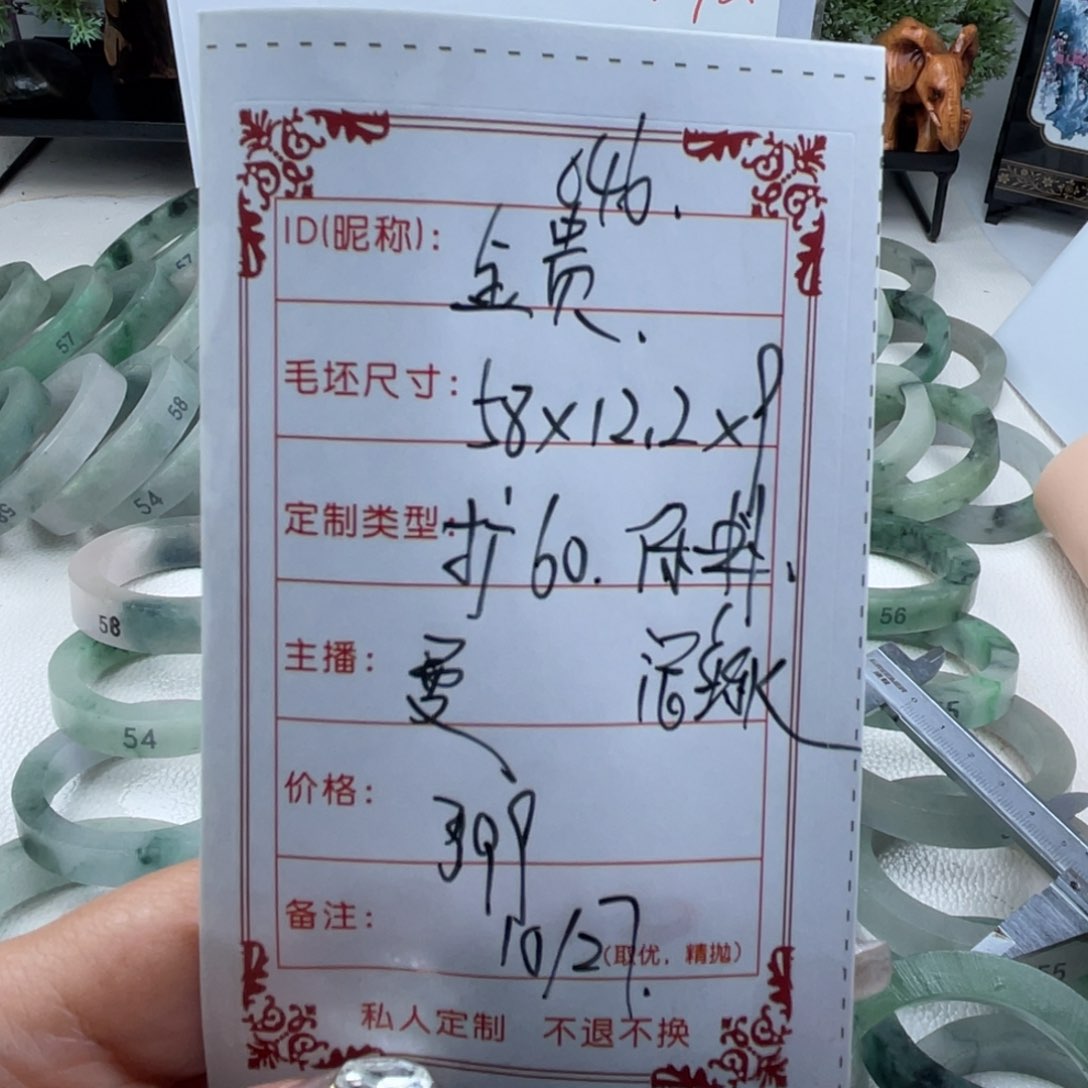 046.
ID(昵称): 金贵.
毛坯尺寸: 58×12.2×9
定制类型: 扩60.
主播:
价格: 399
备注: 10/27.
(取优，精抛)
私人定制 不退不换
57
57
58
54
58
54
56
55